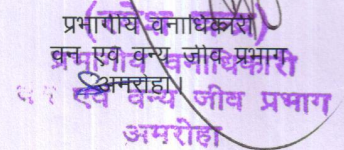 प्रभागीय वनाधिकारी
वन एवं वन्य जीव प्रभाग
प्रभागीय वनाधिकारी
अमरोहा।
वन एवं वन्य जीव प्रभाग
अमरोहा